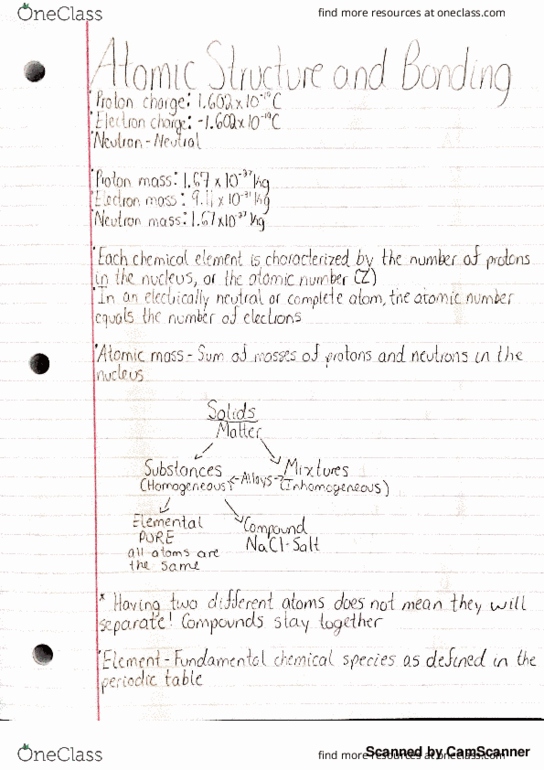 OneClass
find more resources at oneclass.com
Atomic Structure and Bonding
Proton charge: 1.602x10⁻¹⁹C
Electron charge: -1.602x10⁻¹⁹C
Neutron - Neutral
Proton mass: 1.67 x 10⁻²⁷ kg
Electron mass: 9.11 x 10⁻³¹ kg
Neutron mass: 1.67x10⁻²⁷ kg
Each chemical element is characterized by the number of protons
in the nucleus, or the atomic number (Z)
In an electrically neutral or complete atom, the atomic number
equals the number of electrons
Atomic mass - Sum of masses of protons and neutrons in the
nucleus
Solids
Matter
Substances
(Homogeneous)
Alloys
Mixtures
(Inhomogeneous)
Elemental
PURE
all atoms are
the same
Compound
NaCl-Salt
* Having two different atoms does not mean they will
separate! Compounds stay together
Element - Fundamental chemical species as defined in the
periodic table
OneClass
find more resources at oneclass.com
Scanned by CamScanner